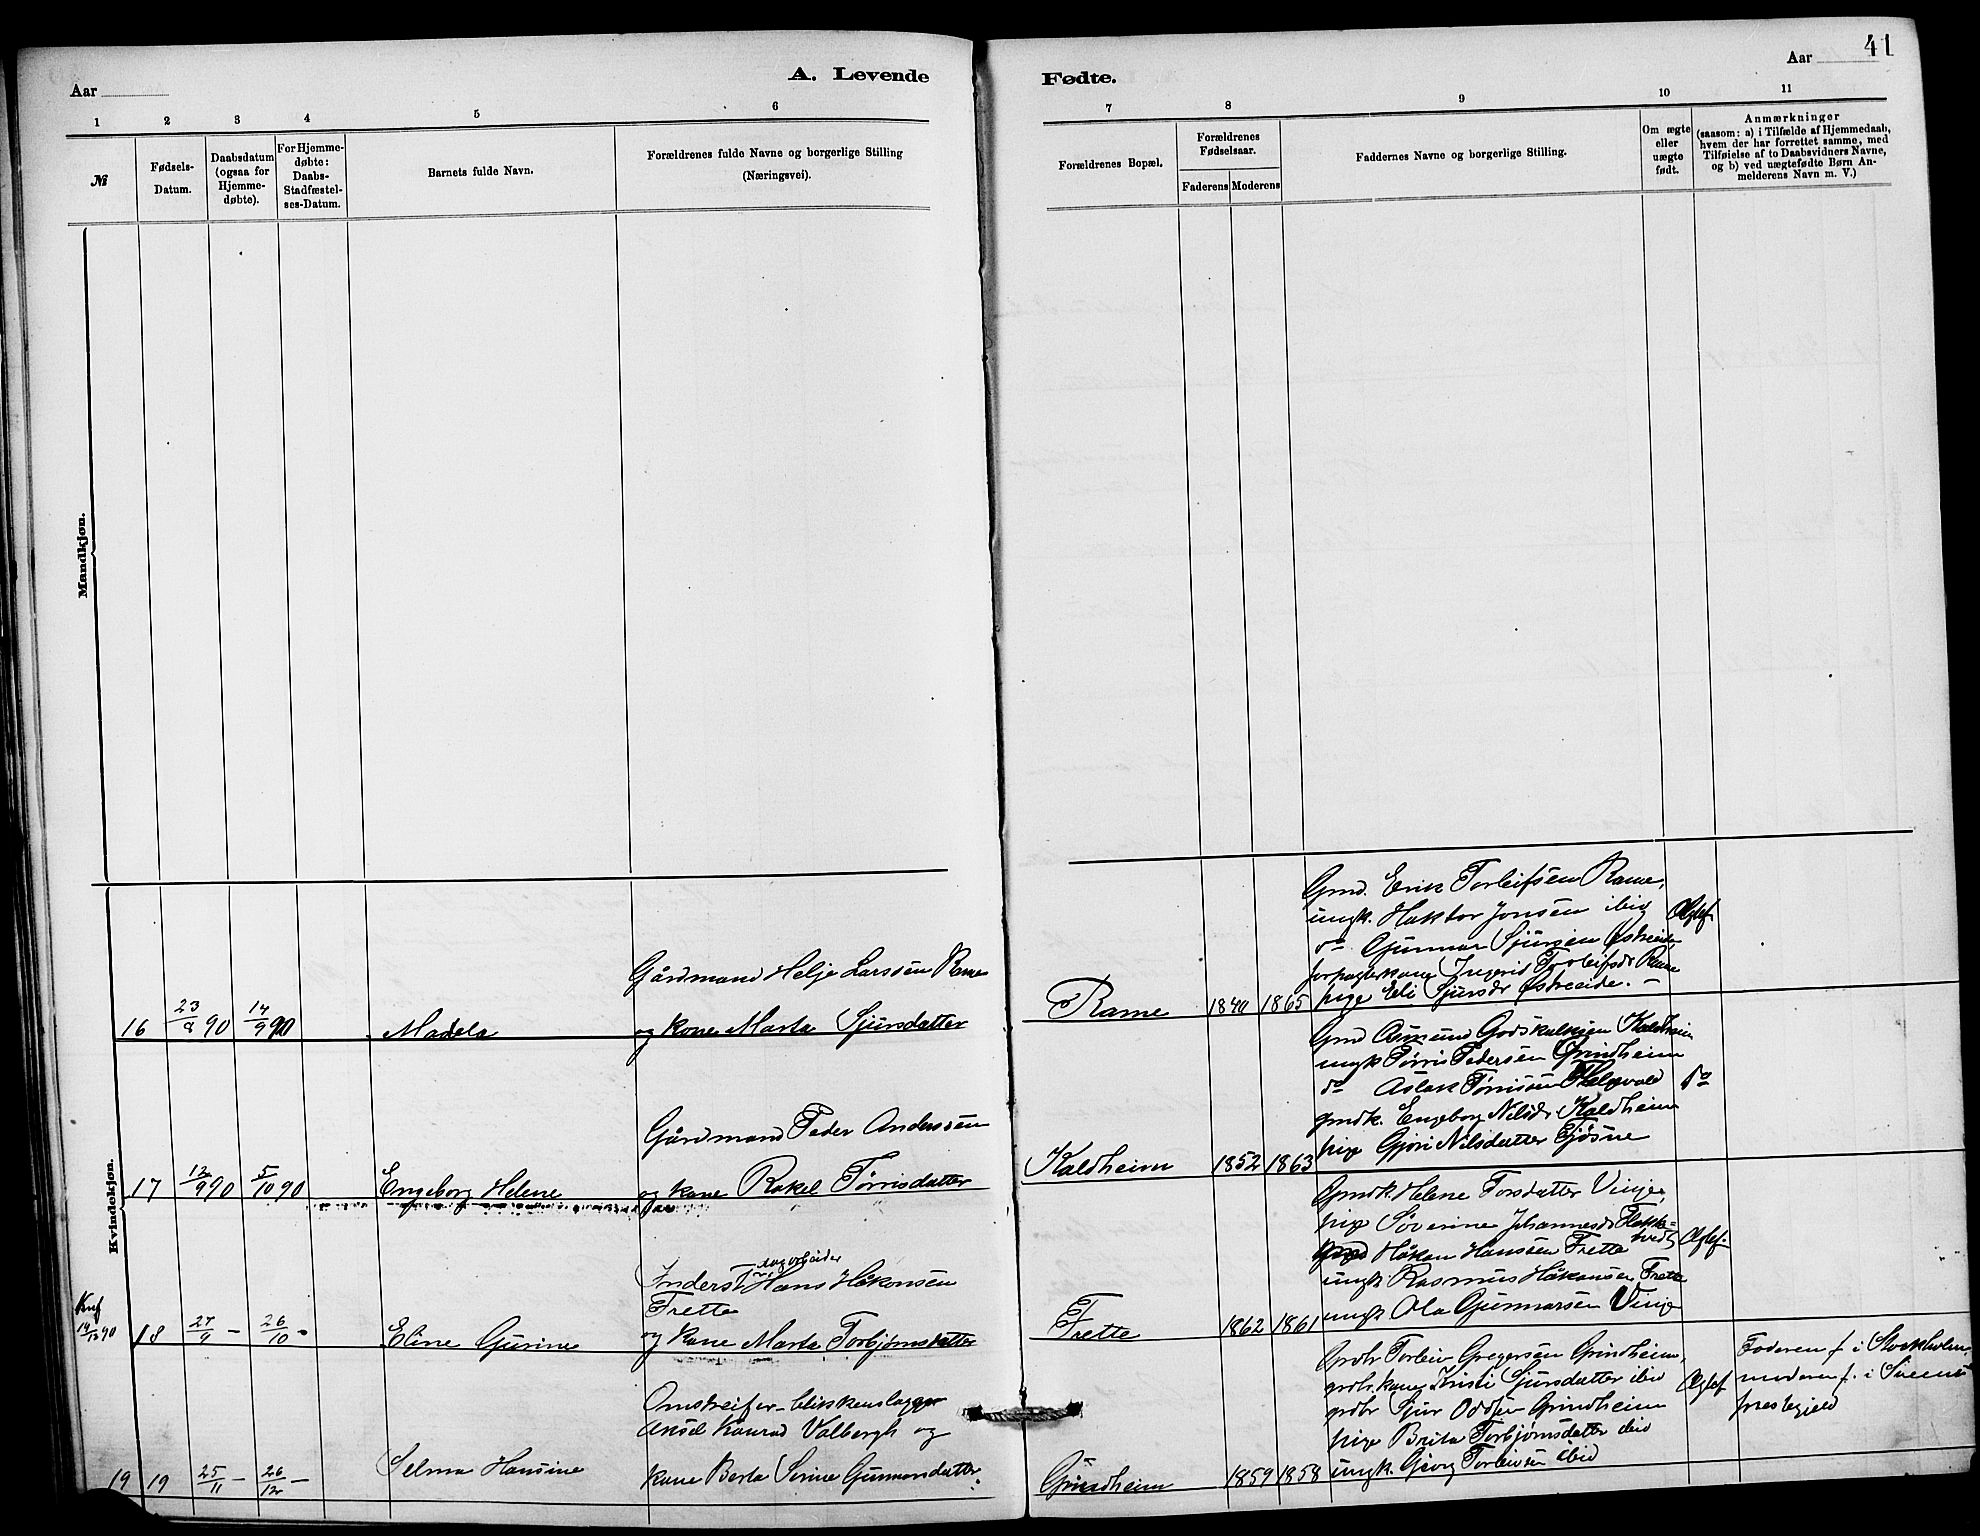 41
Aar
A. Levende
Fødte.
Aar
1 2 3 4 5 6
7 8 9 10 11
№
Fødsels-
Datum.
Daabsdatum
(ogsaa for
Hjemme-
døbte).
For Hjemme-
døbte:
Daabs-
Stadfæstel-
ses-Datum.
Barnets fulde Navn.
Forældrenes fulde Navne og borgerlige Stilling
(Næringsvei).
Forældrenes Bopæl.
Forældrenes
Fødselsaar.
Faderens Moderens
Faddernes Navne og borgerlige Stilling.
Om ægte
eller
uægte
født.
Anmærkninger
(saasom: a) i Tilfælde af Hjemmedaab,
hvem der har forrettet samme, med
Tilføielse af to Daabsvidners Navne,
og b) ved uægtefødte Børn An-
melderens Navn m. V.)
Mandkjøn.
Kvindekjøn.
16 23/8 90 14/9 90 Madela
Gårdmand Helje Larssen Rame
og kone Marta Sjursdatter
Rame 1840 1865
Gmd. Erik Torleifsen Rame,
ungk. Haktor Jonsen ibid
do Gunnar Sjursen Østreide,
forpagterkone Ingerid Torleifsdr Rame
pige Eli Sjursdr Østreeide.
Ægtef.
17 12/9 90 5/10 90 Engeborg Helene
Gårdmand Peder Anderssen
og kone Rakel Tørrisdatter
Kaldheim 1852 1863
Gmd Asmund Godskalksen Kaldheim
ungk Tørris Pedersen Grindheim
do Aslak Tørrissen
gmdk. Engeborg Nilsdr. Kaldheim
pige Gjøri Nilsdatter Gjøsne
do
Knf
18 27/9 – 26/10 – Eline Gurine
Inderst dagarbeider Hans Håkonsen
Frette
og kone Marta Torbjørnsdatter
Frette 1862 1861
Gmdk. Helene Torsdatter Vinje,
pige Søverine Johannesdr Flokke-
tvedt
Håkon Hanssen Frette
ungk Rasmus Håkonsen Frette
ungk Ola Gunnarsen Vinje
Ægtef.
19 19 25/11 – 26/12 – Selma Hansine
Omstreifer – blikkenslagger
Aksel Konrad Valbergh og
kone Berta Serine Gunnarsdatter
Grindheim 1859 1858
Grdbr Torleiv Gregersen Grindheim,
grdbr. kone Kristi Sjursdatter ibid
grdbr Sjur Oddsen Grindheim
pige Brita Torbjørnsdatter ibid
ungk. Georg Torleivsen ibid
Ægtef
Faderen f. i Stockholm,
moderen f. i
prestegjeld